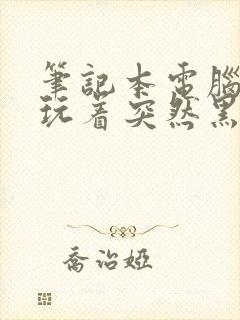 筆記本電腦
玩着突然黑
喬治婭